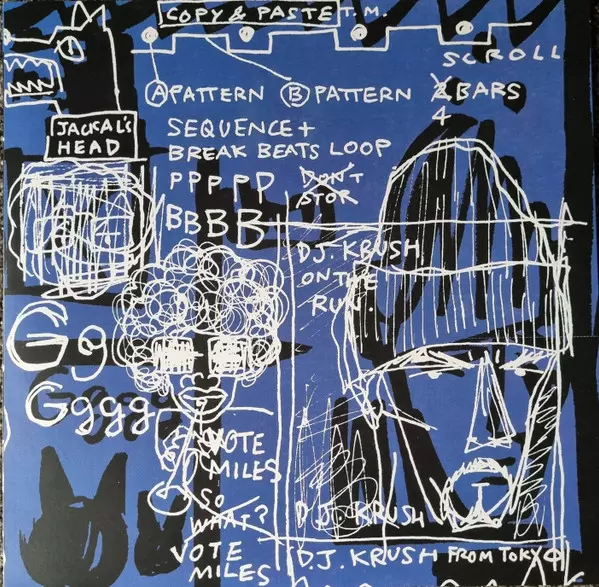 COPY & PASTE T.M.
SCROLL
A PATTERN B PATTERN 2 BARS
4
JACKAL'S
HEAD
SEQUENCE +
BREAK BEATS LOOP
PPPPP
DON'T
STOP
BBBB
D.J. KRUSH
ON THE
RUN.
Gg
Gggg
VOTE
MILES
SO
WHAT?
VOTE
MILES
D.J. KRUSH
D.J. KRUSH FROM TOKYO